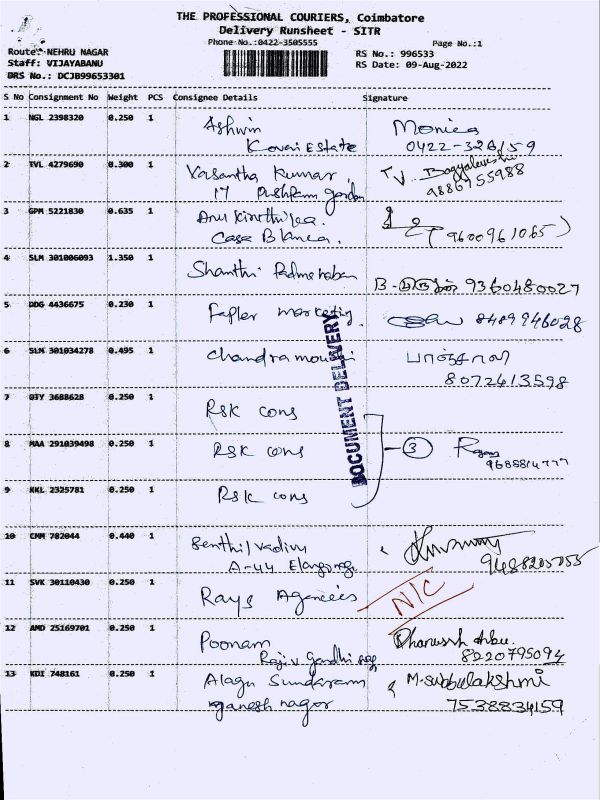 THE PROFESSIONAL COURIERS, Coimbatore
Delivery Runsheet - SITR
Phone No.:0422-3505555
Page No.:1
Route: NEHRU NAGAR
Staff: VIJAYABANU
DRS No.: DCJB99653301
RS No.: 996533
RS Date: 09-Aug-2022
S No Consignment No Weight PCS Consignee Details Signature
1 NGL 2398320 0.250 1 Ashwin Monica
Kovai Estate 0422-324159
2 TVL 4279690 0.300 1 Vasantha Kumar, T.V.
17 Pushpam garden 9886755988
3 GPM 5221830 0.635 1 Anu Kiruthika.
Casa Blanca. (9600961065)
4 SLM 301006093 1.350 1 Shanthi Padmanaban
B- 9360480027
5 DDG 4436675 0.230 1 marketing 8489946028
6 SLM 301034278 0.495 1 Chandramouli
8072413598
DOCUMENT DELIVERY
7 OTY 3688628 0.250 1 RSK cons
8 MAA 291039498 0.250 1 RSK cons 3
9688814777
9 KKL 2325781 0.250 1 RSK cons
10 CMM 782044 0.440 1 Senthil vadivu
A-44 9488205755
11 SVK 30110430 0.250 1 Rays Agencies N/C
12 AMD 25169701 0.250 1 Poonam Dhanussh
Rajiv Gandhi nag 8220795094
13 KDI 748161 0.250 1 Alagu Sundaram M.subbulakshmi
ganesh nagar 7538834159